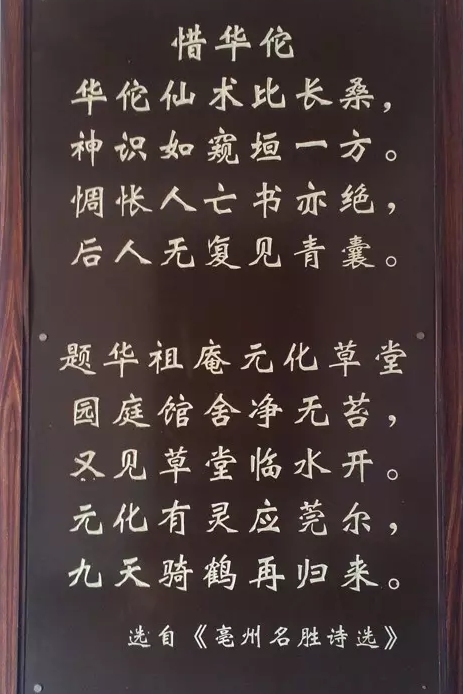 惜华佗
华佗仙术比长桑，
神识如窥垣一方。
惆怅人亡书亦绝，
后人无复见青囊。
题华祖庵元化草堂
园庭馆舍净无苔，
又见草堂临水开。
元化有灵应莞尔，
九天骑鹤再归来。
选自《亳州名胜诗选》